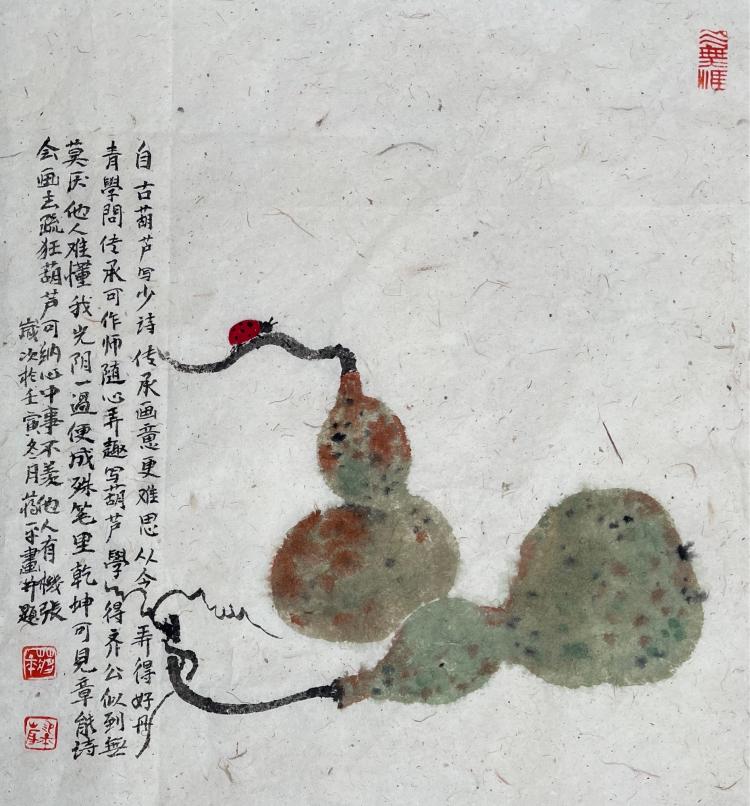 自古葫芦写少诗传承画意更难思从今弄得好丹
青學問传承可作师随心弄趣写葫芦學得齐公似到無
莫厌他人难懂我光阴一過便成殊笔里乾坤可見章能诗
会画志疏狂葫芦可纳心中事不羡他人有機张
歲次於壬寅冬月蒋平畫并題